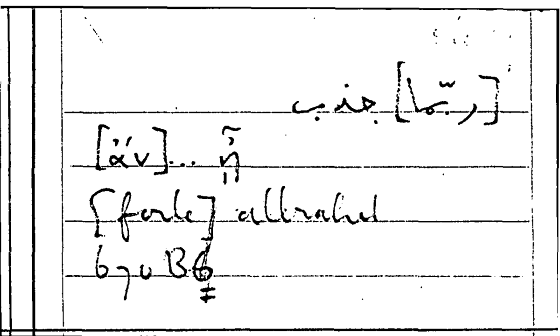 [ربّما] جذب
[ἂν]... ᾖ
[forte] attrahet
670 B6